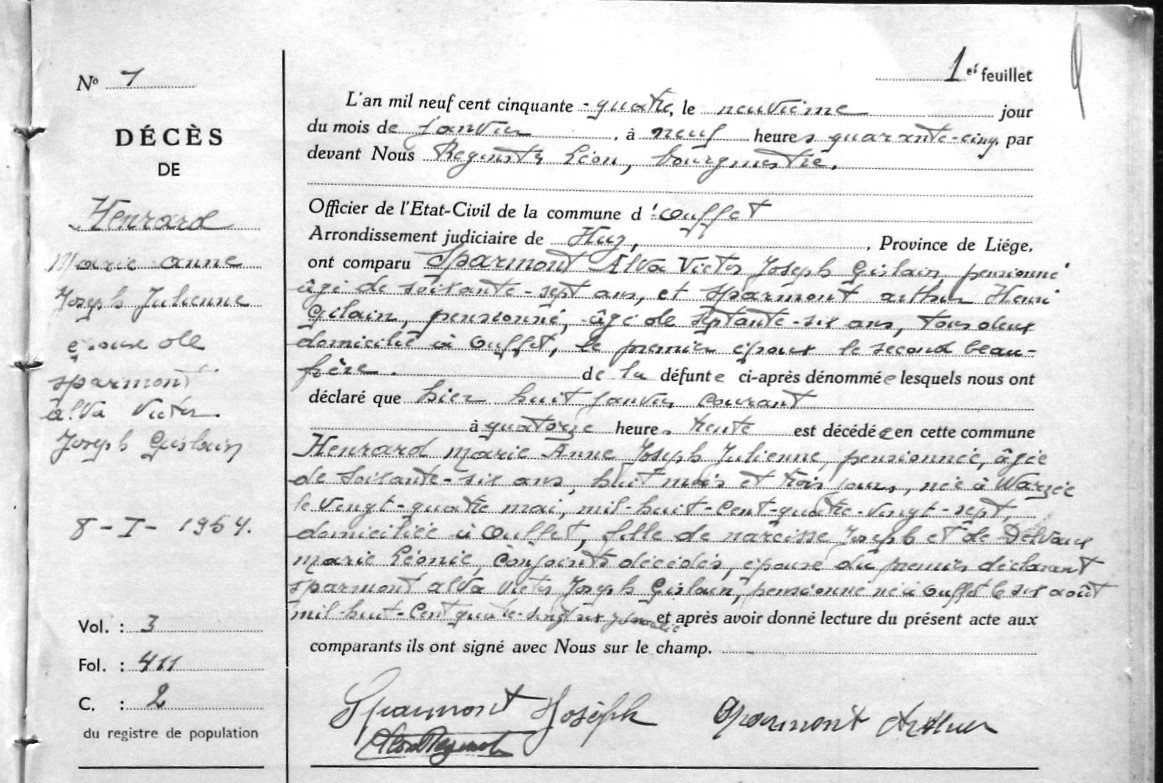 Nº 7
DÉCÈS
DE
Henrard
Marie Anne
Joseph Julienne
épouse de
Sparmont
Alva Victor
Joseph Guislain
8-I-1954.
Vol. : 3
Fol. : 411
C. : 2
du registre de population
1er feuillet
L'an mil neuf cent cinquante-quatre, le neuvième jour
du mois de janvier, à neuf heures quarante-cinq, par
devant Nous Léon, bourgmestre,
Officier de l'Etat-Civil de la commune d'Ouffet
Arrondissement judiciaire de Huy, Province de Liége,
ont comparu Sparmont Alva Victor Joseph Gislain, pensionné
âgé de soixante-sept ans, et Sparmont Arthur Henri
Gilain, pensionné, âgé de septante-six ans, tous deux
domiciliés à Ouffet, le premier époux le second beau-
frère. de la défunte ci-après dénommée lesquels nous ont
déclaré que hier huit janvier courant
à quatorze heures trente est décédée en cette commune
Henrard Marie Anne Joseph Julienne, pensionnée, âgée
de soixante-six ans, huit mois et trois jours, née à Warzée
le vingt-quatre mai, mil-huit-cent-quatre-vingt-sept,
domiciliée à Ouffet, fille de Narcisse Joseph et de Delvaux
Marie Léonie, conjoints décédés, épouse du premier déclarant
Sparmont Alva Victor Joseph Gislain, pensionné né à Ouffet le six août
mil-huit-cent quatre-vingt-six et après avoir donné lecture du présent acte aux
comparants ils ont signé avec Nous sur le champ.
Sparmont Joseph Sparmont Arthur